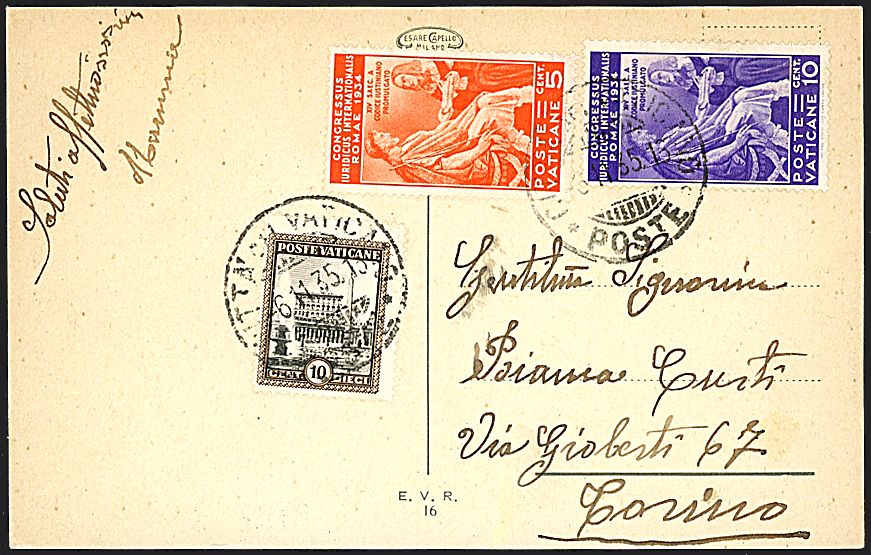 Saluti affettuosissimi
CESARE CAPELLO
MILANO
CONGRESSUS
IURIDICUS INTERNATIONALIS
ROMAE 1934
XIV SAEC. A
CODICE IUSTINIANO
PROMULGATO
POSTE
VATICANE
CENT.
5
CONGRESSUS
IURIDICUS INTERNATIONALIS
ROMAE 1934
XIV SAEC. A
CODICE IUSTINIANO
PROMULGATO
POSTE
VATICANE
CENT.
10
POSTE
CITTA DEL VATICANO
6.11.35.15
POSTE VATICANE
CENT. 10 DIECI
Gentilma Signorina
Bianca Curti
Via Gioberti 67
Torino
E. V. R.
16